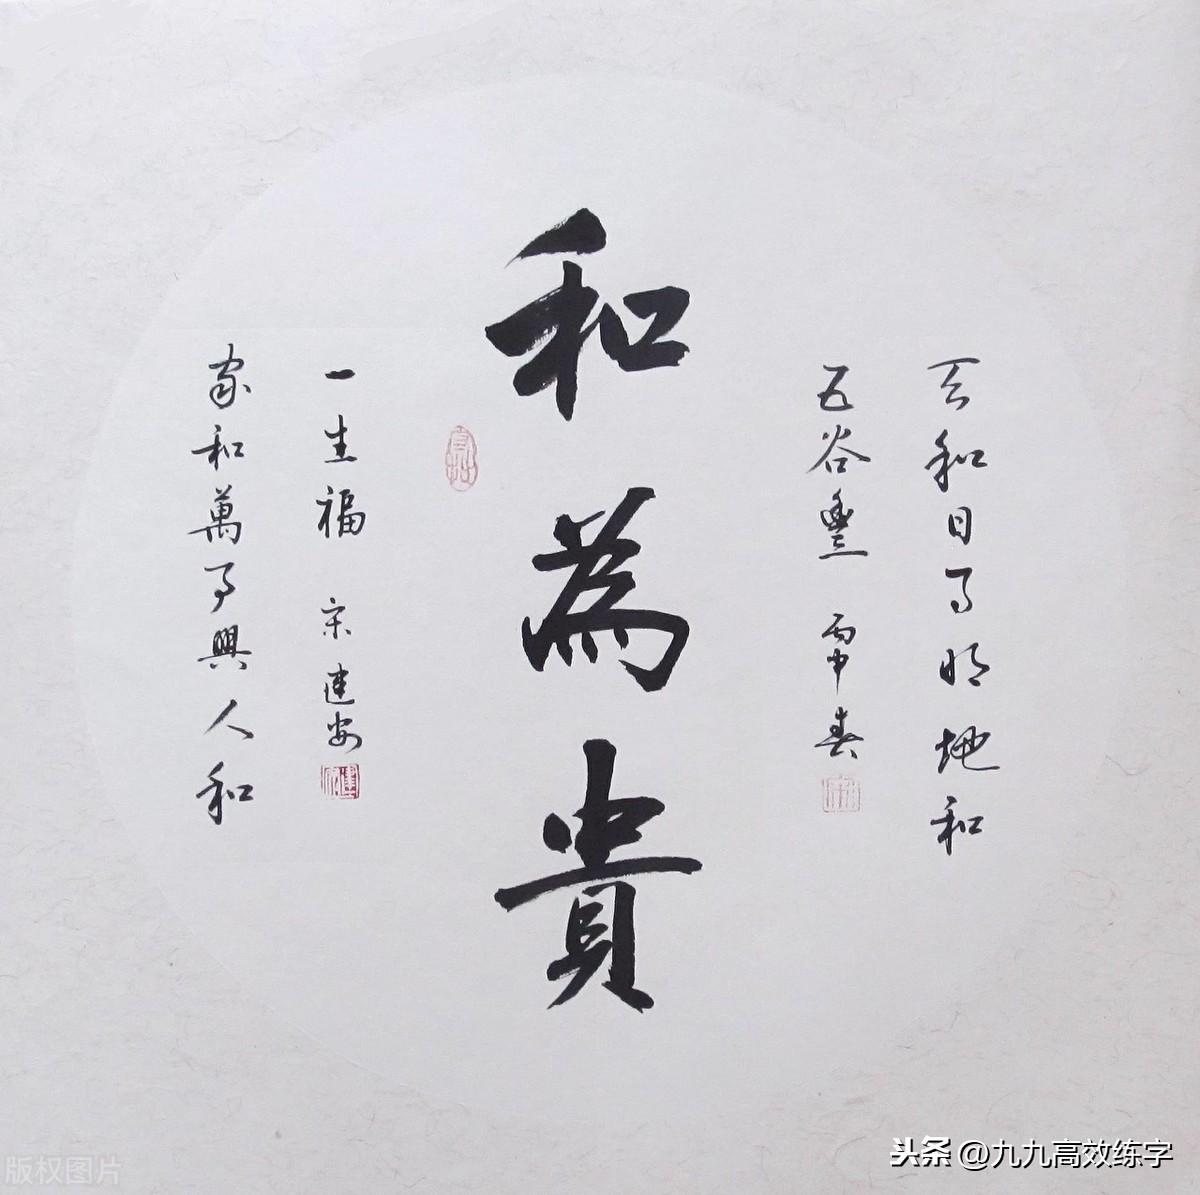 和為貴
天和日月明地和
五谷豐 丙申春
家和萬事興人和
一生福 宋建安
版权图片
头条 @九九高效练字